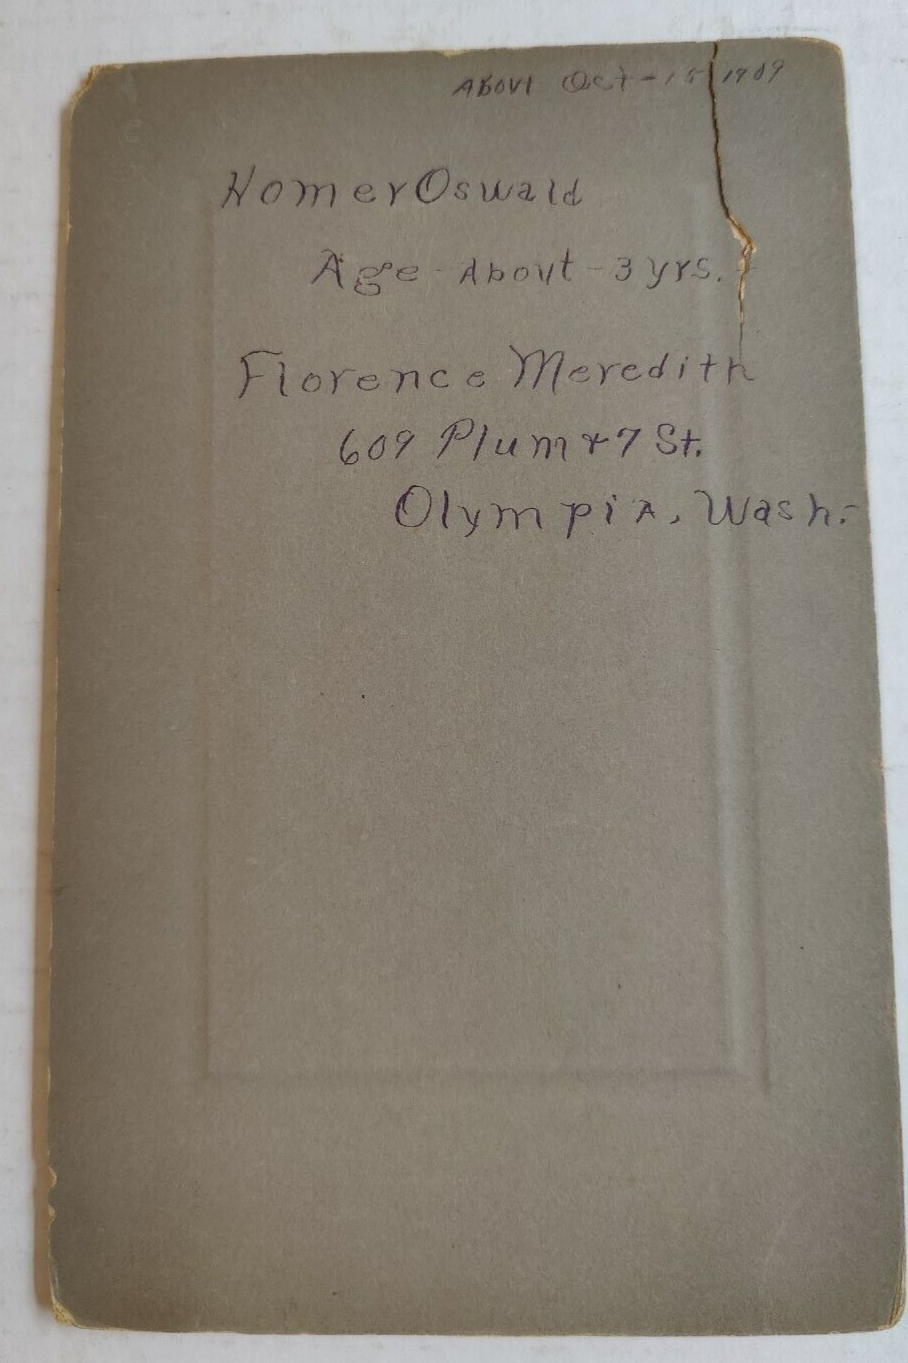 About Oct-15 1909
Homer Oswald
Age - About - 3 yrs. -
Florence Meredith
609 Plum & 7 St.
Olympia, Wash.